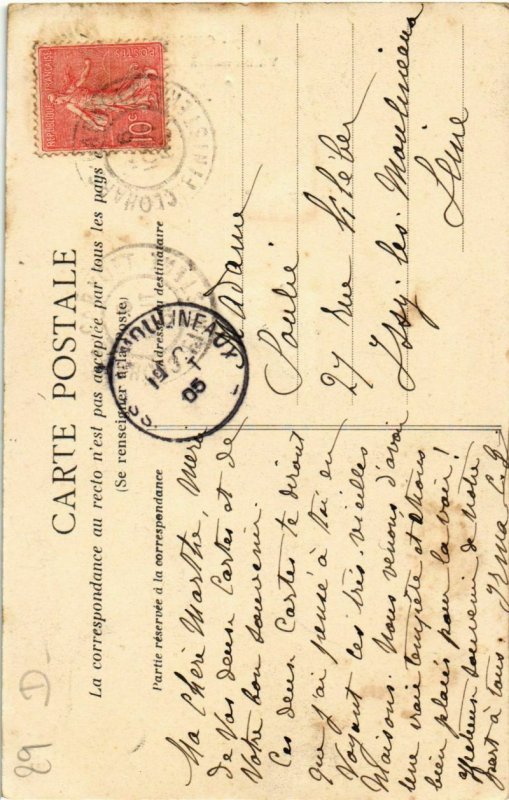 CARTE POSTALE
La correspondance au recto n'est pas acceptée par tous les pays
(Se renseigner à la poste)
Partie réservée à la correspondance
Adresse du destinataire
REPUBLIQUE FRANÇAISE
POSTES
10 c
CLOHARS
FINISTERE
MOULINEAUX
05
Madame
Soulié
27 Rue Kléber
Issy-les-Moulineaux
Seine
Ma Chère Marthe, Merci
de Vos deux Cartes et de
Votre bon souvenir
Ces deux Cartes te diront
que j'ai pensé à toi en
Voyant ces très vieilles
Maisons. Nous venons d'avoir
une vraie tempête et étions
bien placés pour la voir!
affectueux souvenir de notre
part à tous. Irma
29 D-